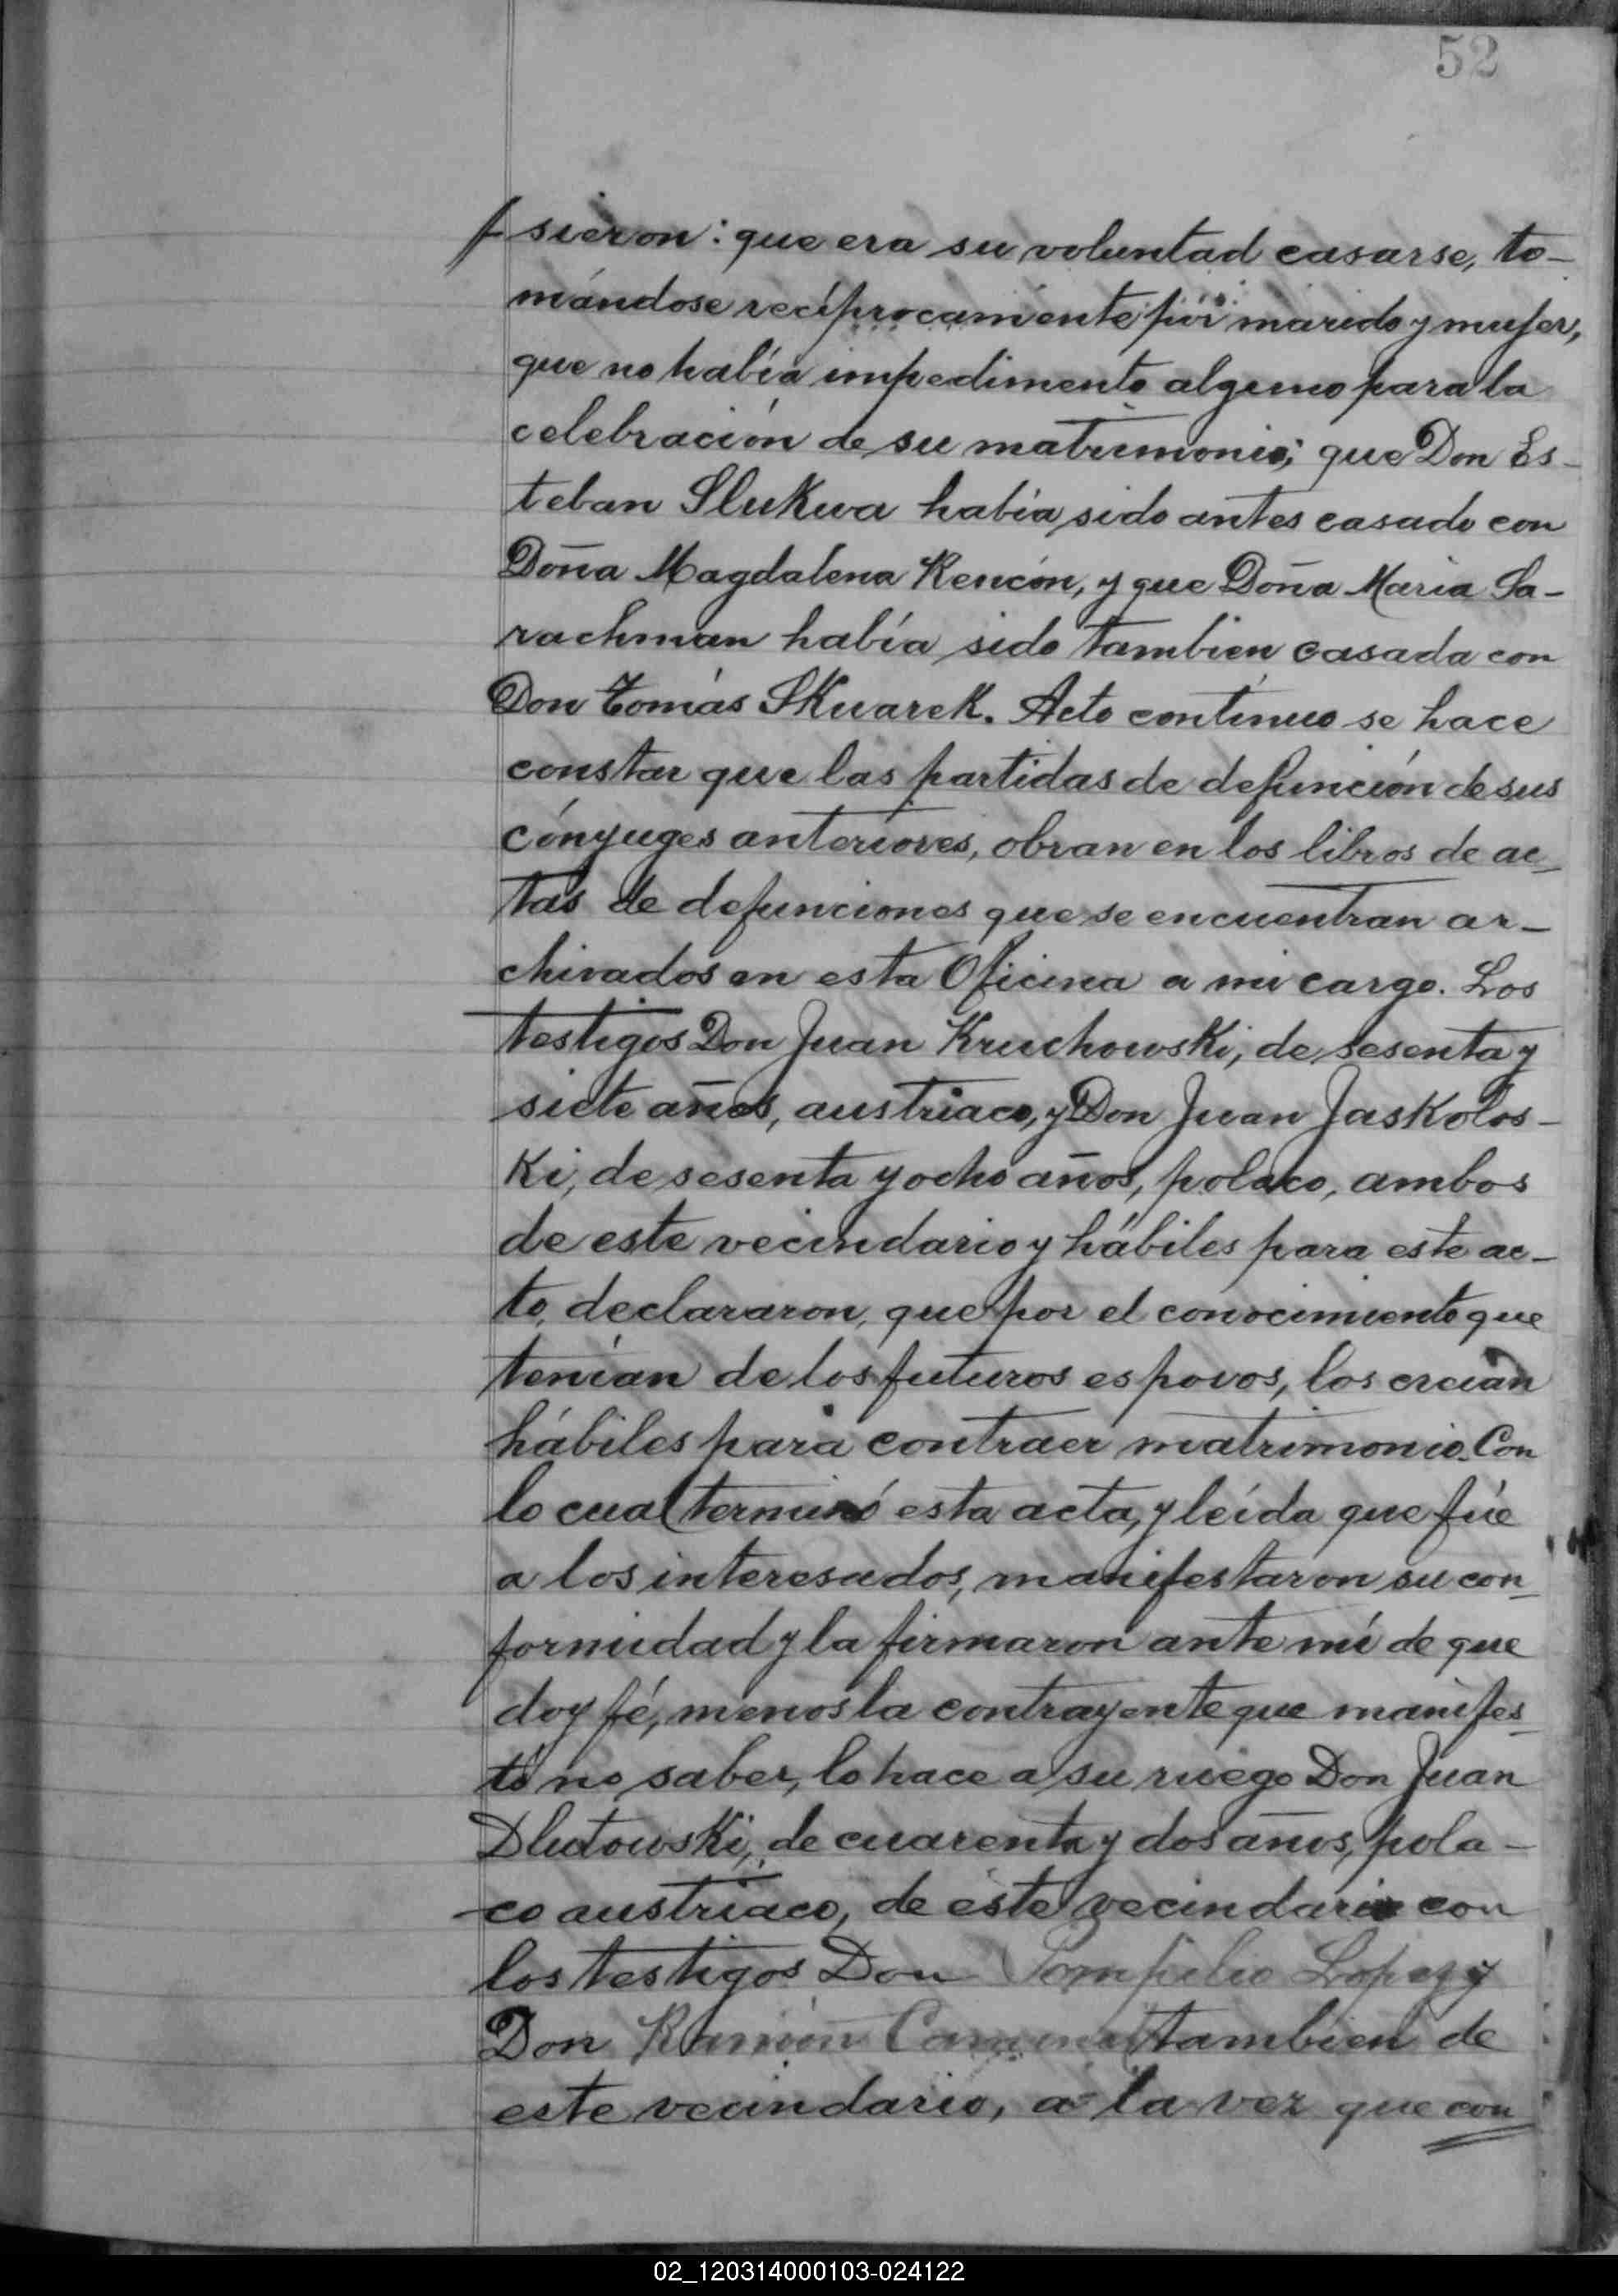 52
sieron: que era su voluntad casarse, to-
mándose recíprocamente por marido y mujer,
que no había impedimento alguno para la
celebración de su matrimonio; que Don Es-
teban Slukwa había sido antes casado con
Doña Magdalena Rencón, y que Doña Maria Sa-
rachman había sido tambien casada con
Don Tomás Skwarek. Acto contínuo se hace
constar que las partidas de defunción de sus
cónyuges anteriores, obran en los libros de ac-
tas de defunciones que se encuentran ar-
chivados en esta Oficina a mi cargo. Los
testigos Don Juan Kruchowski, de sesenta y
siete años, austriaco, y Don Juan Jaskolos-
ki, de sesenta y ocho años, polaco, ambos
de este vecindario y hábiles para este ac-
to, declararon, que por el conocimiento que
tenían de los futuros esposos, los creían
hábiles para contraer matrimonio. Con
lo cual terminó esta acta, y leída que fúe
a los interesados, manifestaron su con-
formidad y la firmaron ante mí de que
doy fé, menos la contrayente que manifes-
tó no saber, lo hace a su ruego Don Juan
Dlutowski, de cuarenta y dos años, pola-
co austríaco, de éste vecindario con
los testigos Don Pompilio Lopez y
Don Ramón tambien de
este vecindario, a la vez que con
02_120314000103-024122